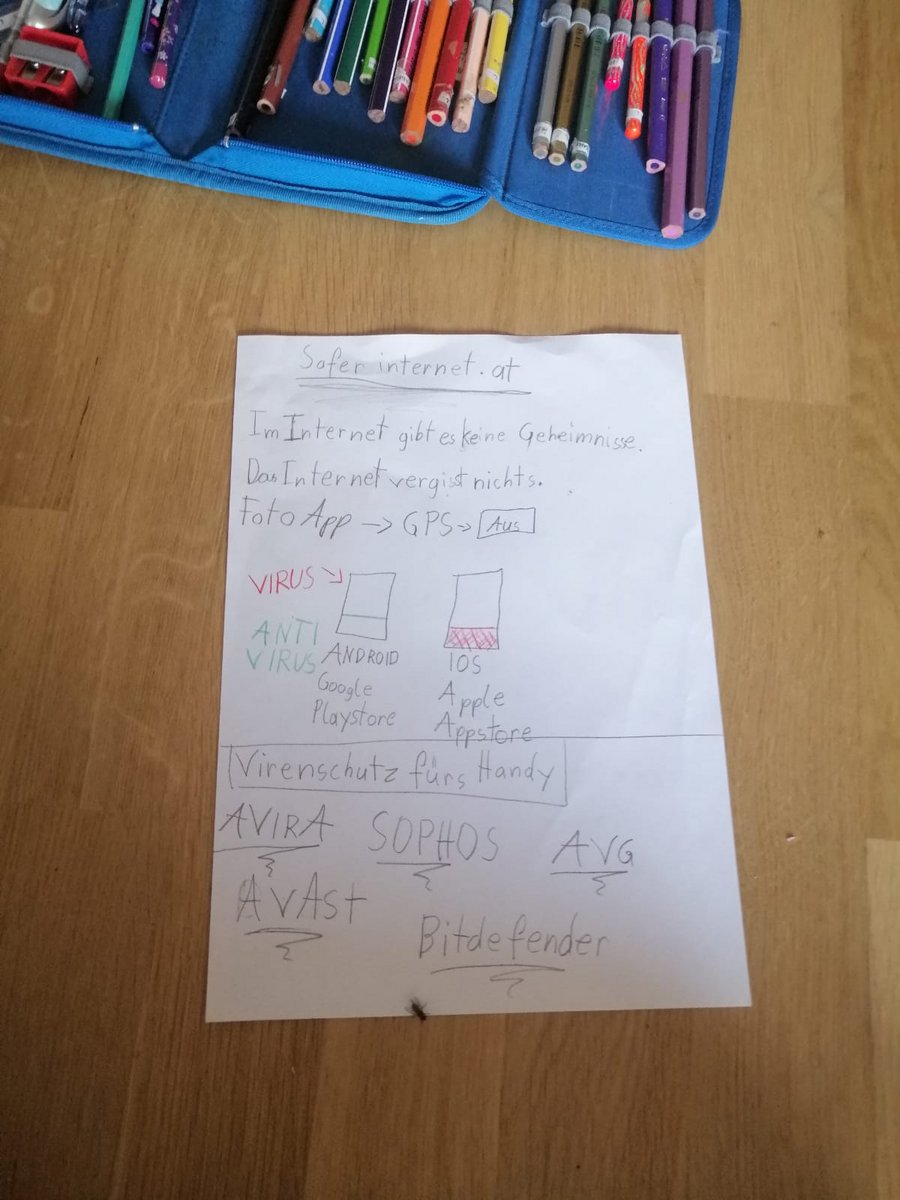 Safer internet.at
Im Internet gibt es keine Geheimnisse.
Das Internet vergist nichts.
Foto App → GPS → Aus
VIRUS
ANTI
VIRUS
ANDROID
Google
Playstore
IOS
Apple
Appstore
Virenschutz fürs Handy
AVIRA SOPHOS AVG
AVAST
Bitdefender